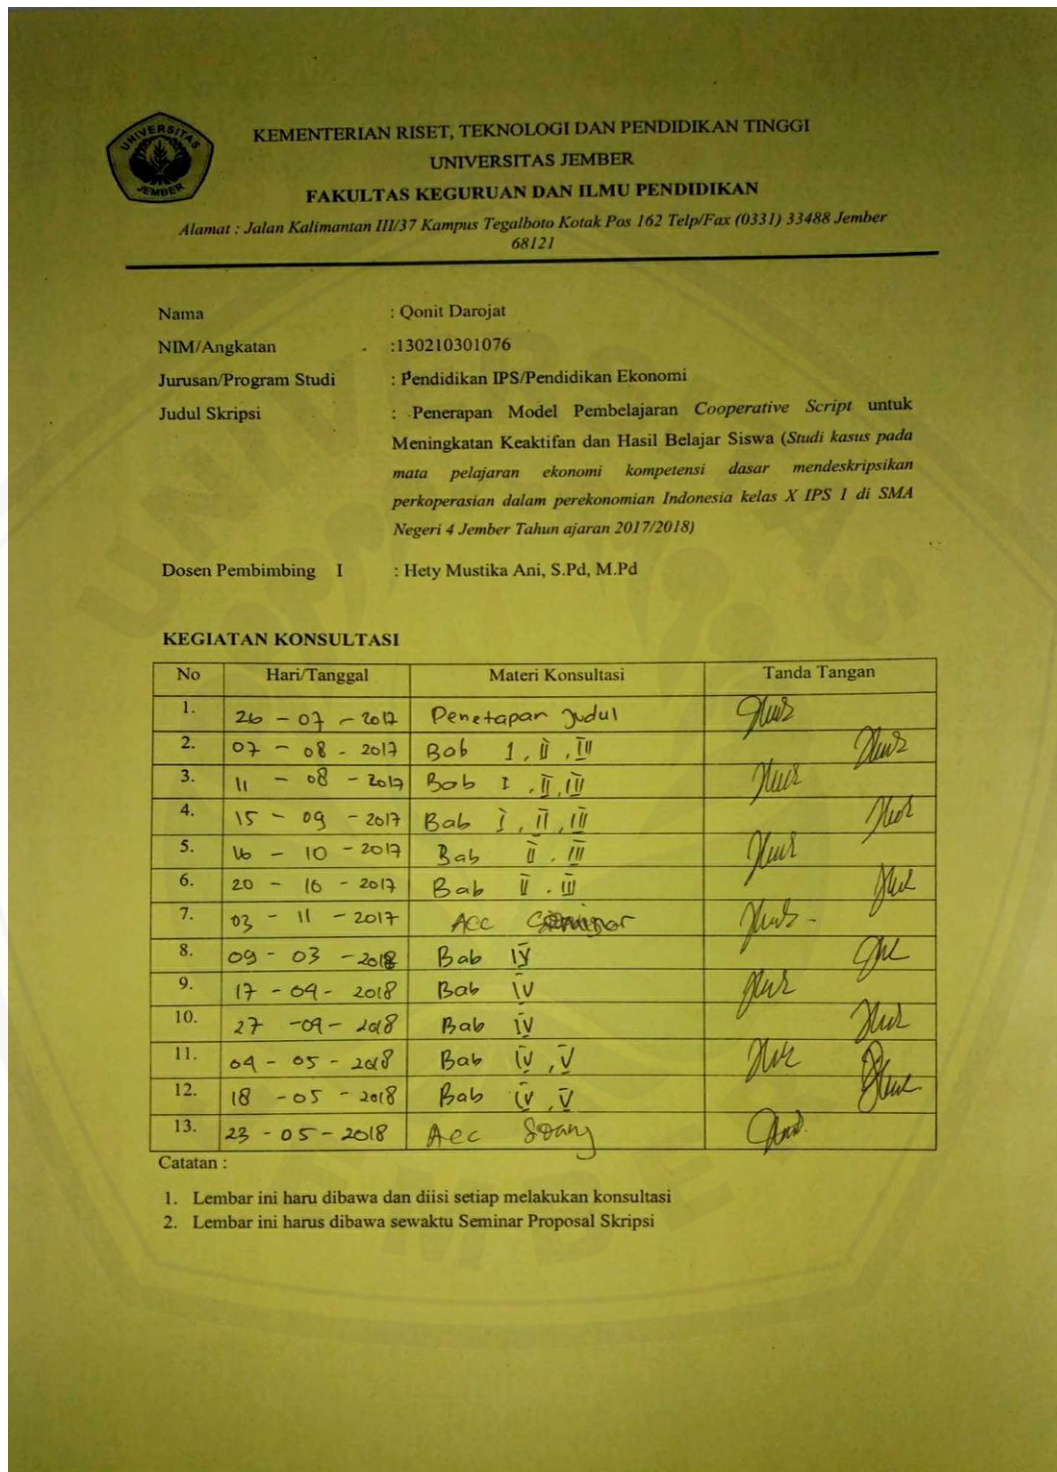 UNIVERSITAS
JEMBER
KEMENTERIAN RISET, TEKNOLOGI DAN PENDIDIKAN TINGGI
UNIVERSITAS JEMBER
FAKULTAS KEGURUAN DAN ILMU PENDIDIKAN
Alamat : Jalan Kalimantan III/37 Kampus Tegalboto Kotak Pos 162 Telp/Fax (0331) 33488 Jember
68121
Nama : Qonit Darojat
NIM/Angkatan :130210301076
Jurusan/Program Studi : Pendidikan IPS/Pendidikan Ekonomi
Judul Skripsi : Penerapan Model Pembelajaran Cooperative Script untuk
Meningkatan Keaktifan dan Hasil Belajar Siswa (Studi kasus pada
mata pelajaran ekonomi kompetensi dasar mendeskripsikan
perkoperasian dalam perekonomian Indonesia kelas X IPS 1 di SMA
Negeri 4 Jember Tahun ajaran 2017/2018)
Dosen Pembimbing I : Hety Mustika Ani, S.Pd, M.Pd
KEGIATAN KONSULTASI
No Hari/Tanggal Materi Konsultasi Tanda Tangan
1. 26 - 07 - 2017 Penetapan Judul
2. 07 - 08 - 2017 Bab I, II, III
3. 11 - 08 - 2017 Bab I, II, III
4. 15 - 09 - 2017 Bab I, II, III
5. 16 - 10 - 2017 Bab II, III
6. 20 - 10 - 2017 Bab II, III
7. 03 - 11 - 2017 Acc Seminar
8. 09 - 03 - 2018 Bab IV
9. 17 - 04 - 2018 Bab IV
10. 27 - 04 - 2018 Bab IV
11. 04 - 05 - 2018 Bab IV, V
12. 18 - 05 - 2018 Bab IV, V
13. 23 - 05 - 2018 Acc Sidang
Catatan :
1. Lembar ini haru dibawa dan diisi setiap melakukan konsultasi
2. Lembar ini harus dibawa sewaktu Seminar Proposal Skripsi